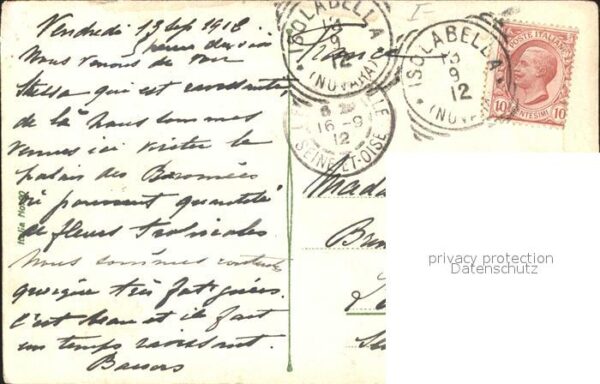 Vendredi 13 Sep 1912
Nous venons de voir
Stresa qui est ravissante,
de là nous sommes
venues ici visiter le
palais des Borromées
où poussent quantité
de fleurs Tropicales
Nous sommes contentes
quoique très fatiguées.
C'est beau et il fait
un temps ravissant.
Baisers
France
ISOLABELLA
13
9
12
(NOVARA)
ISOLABELLA
13
9
12
(NOVARA)
16-9
12
SEINE-ET-OISE
POSTE ITALIANE
10
CENTESIMI
10
Italia
privacy protection
Datenschutz